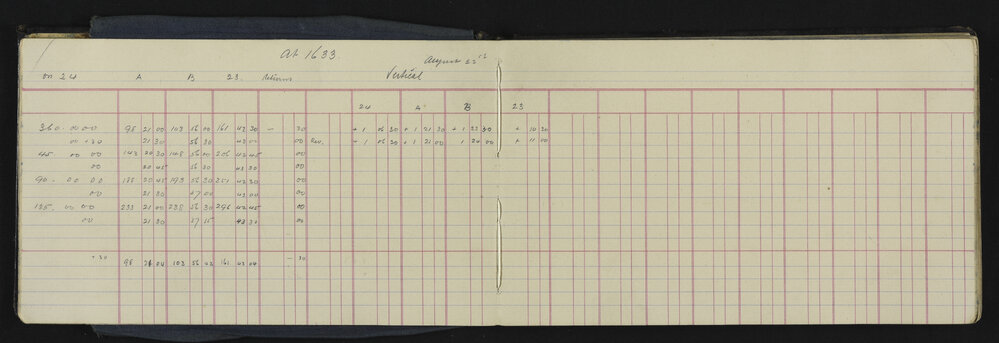 At 1633.
August 22nd
on 24 A B 23. Returns Vertical
24 A B 23
360 00 00 98 21 00 103 56 00 161 43 30 — 30 + 1 06 30 + 1 21 30 + 1 23 30 + 10 30
00 + 30 21 30 56 30 43 00 00 Rev. + 1 06 30 + 1 21 00 1 24 00 + 11 00
45 00 00 143 20 30 148 56 00 206 42 45 00
00 20 45 56 30 43 30 00
90 00 00 188 20 45 193 56 30 251 43 30 00
00 21 30 57 00 43 00 00
135 00 00 233 21 00 238 56 30 296 42 45 00
00 21 30 57 15 43 30 00
+ 30 98 21 04 103 56 43 161 43 04 — 30